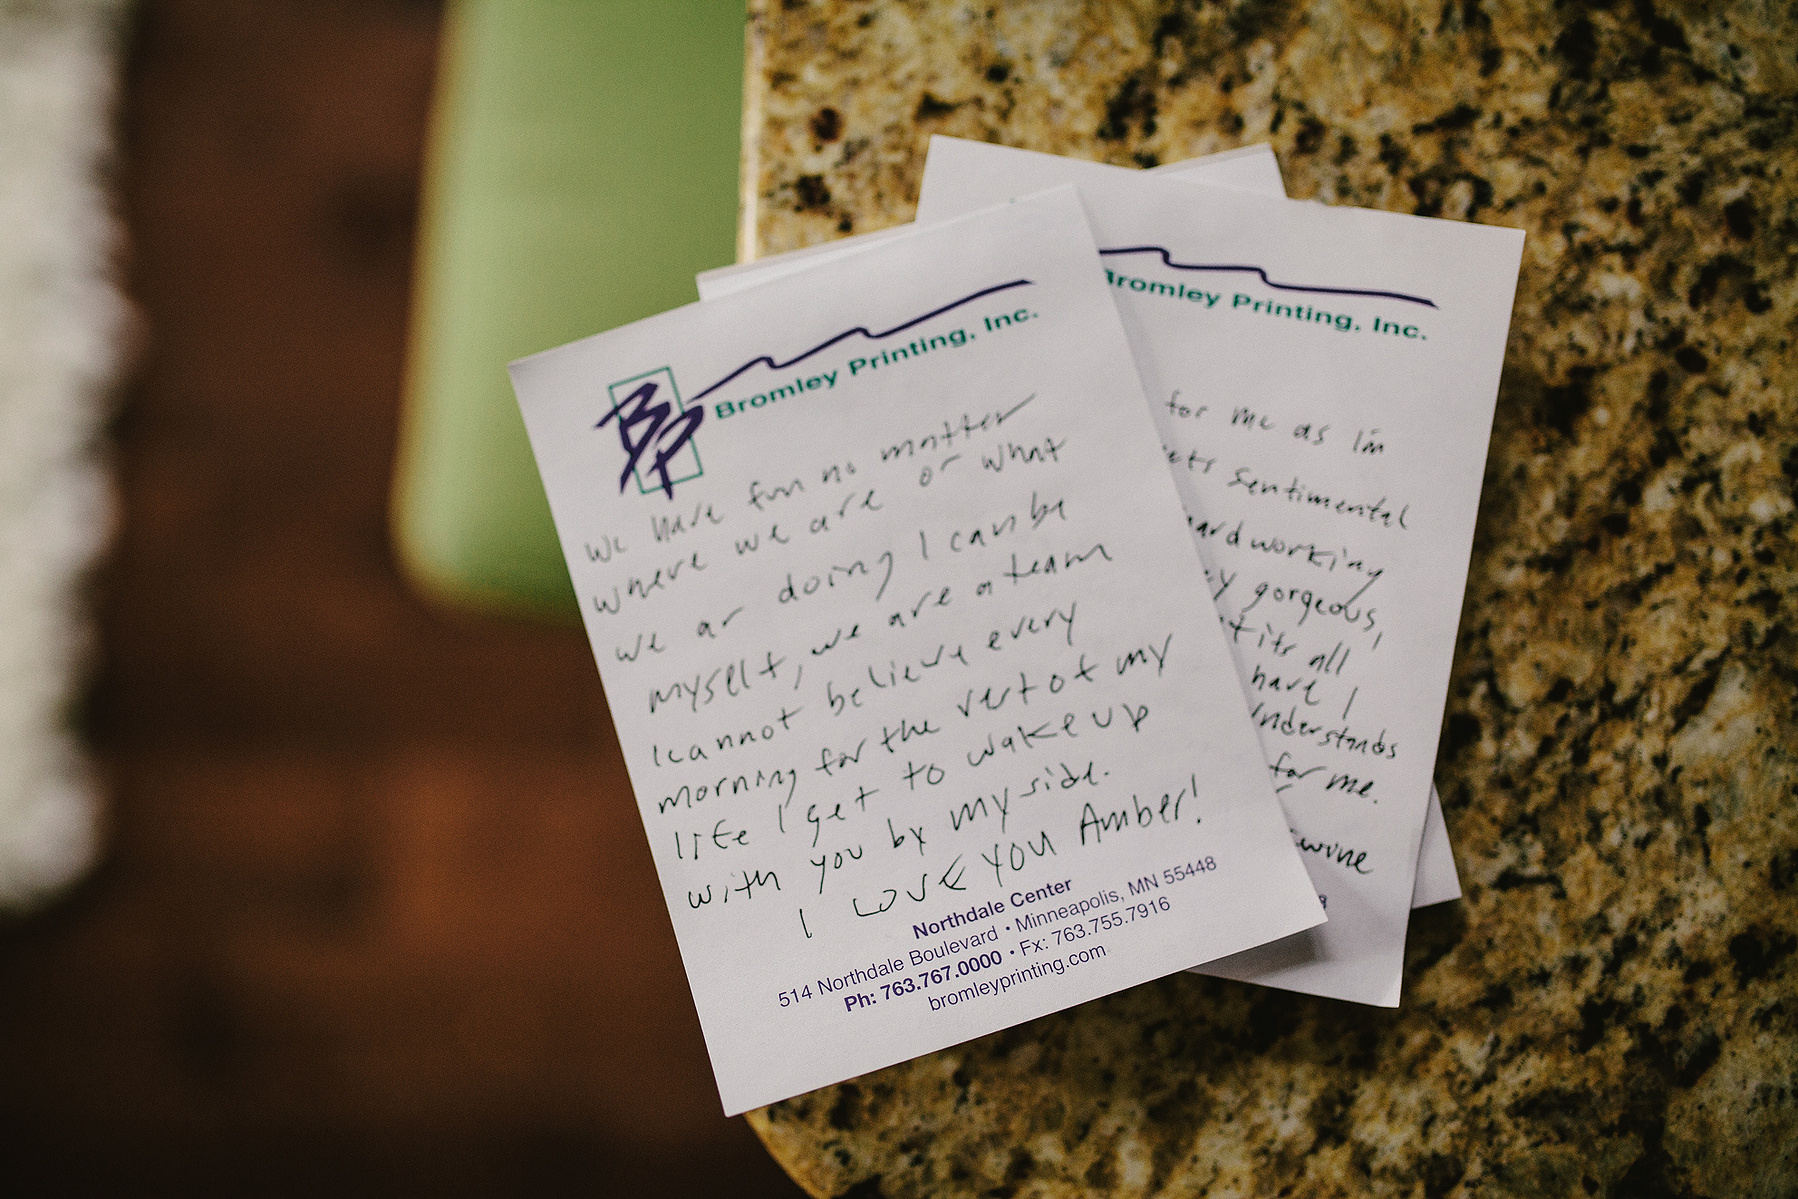 BP
Bromley Printing, Inc.
We have fun no matter
where we are or what
we ar doing I can be
myself, we are a team
I cannot believe every
morning for the rest of my
life I get to wake up
with you by my side.
I LOVE YOU Amber!
Northdale Center
514 Northdale Boulevard • Minneapolis, MN 55448
Ph: 763.767.0000 • Fx: 763.755.7916
bromleyprinting.com
Bromley Printing, Inc.
for me as I'm
sentimental
hard working
gorgeous,
its all
have I
understands
for me.